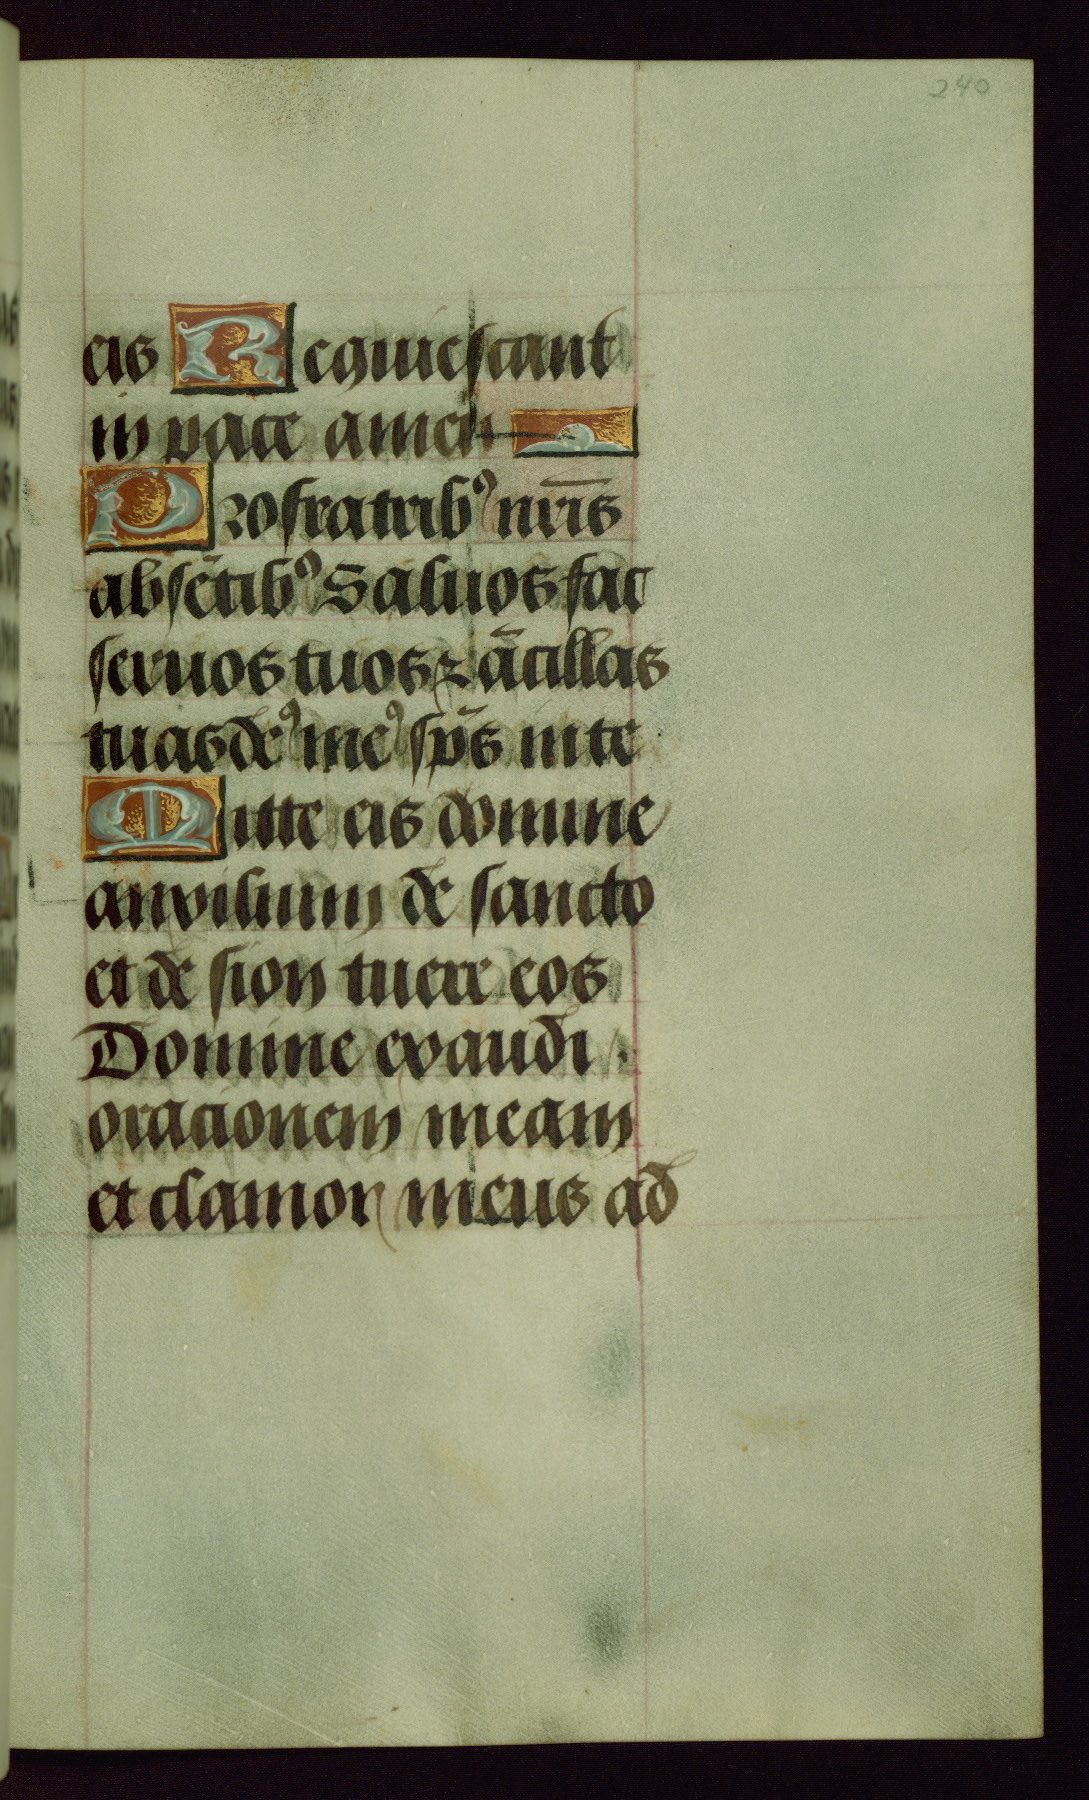 240
eis Requiescant
in pace amen
Pro fratribꝰ nr̄is
absētibꝰ Saluos fac
seruos tuos ⁊ ācillas
tuas deꝰ meꝰ sp̄s in te
Mitte eis domine
auxilium de sancto
et de sion tuere eos
Domine exaudi
oracionem meam
et clamor meus ad